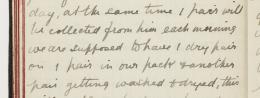 day, at the same time 1 pair will
be collected from him each morning
we are supposed to have 1 dry pair
on 1 pair in our pack & another
pair getting washed & dryed, this